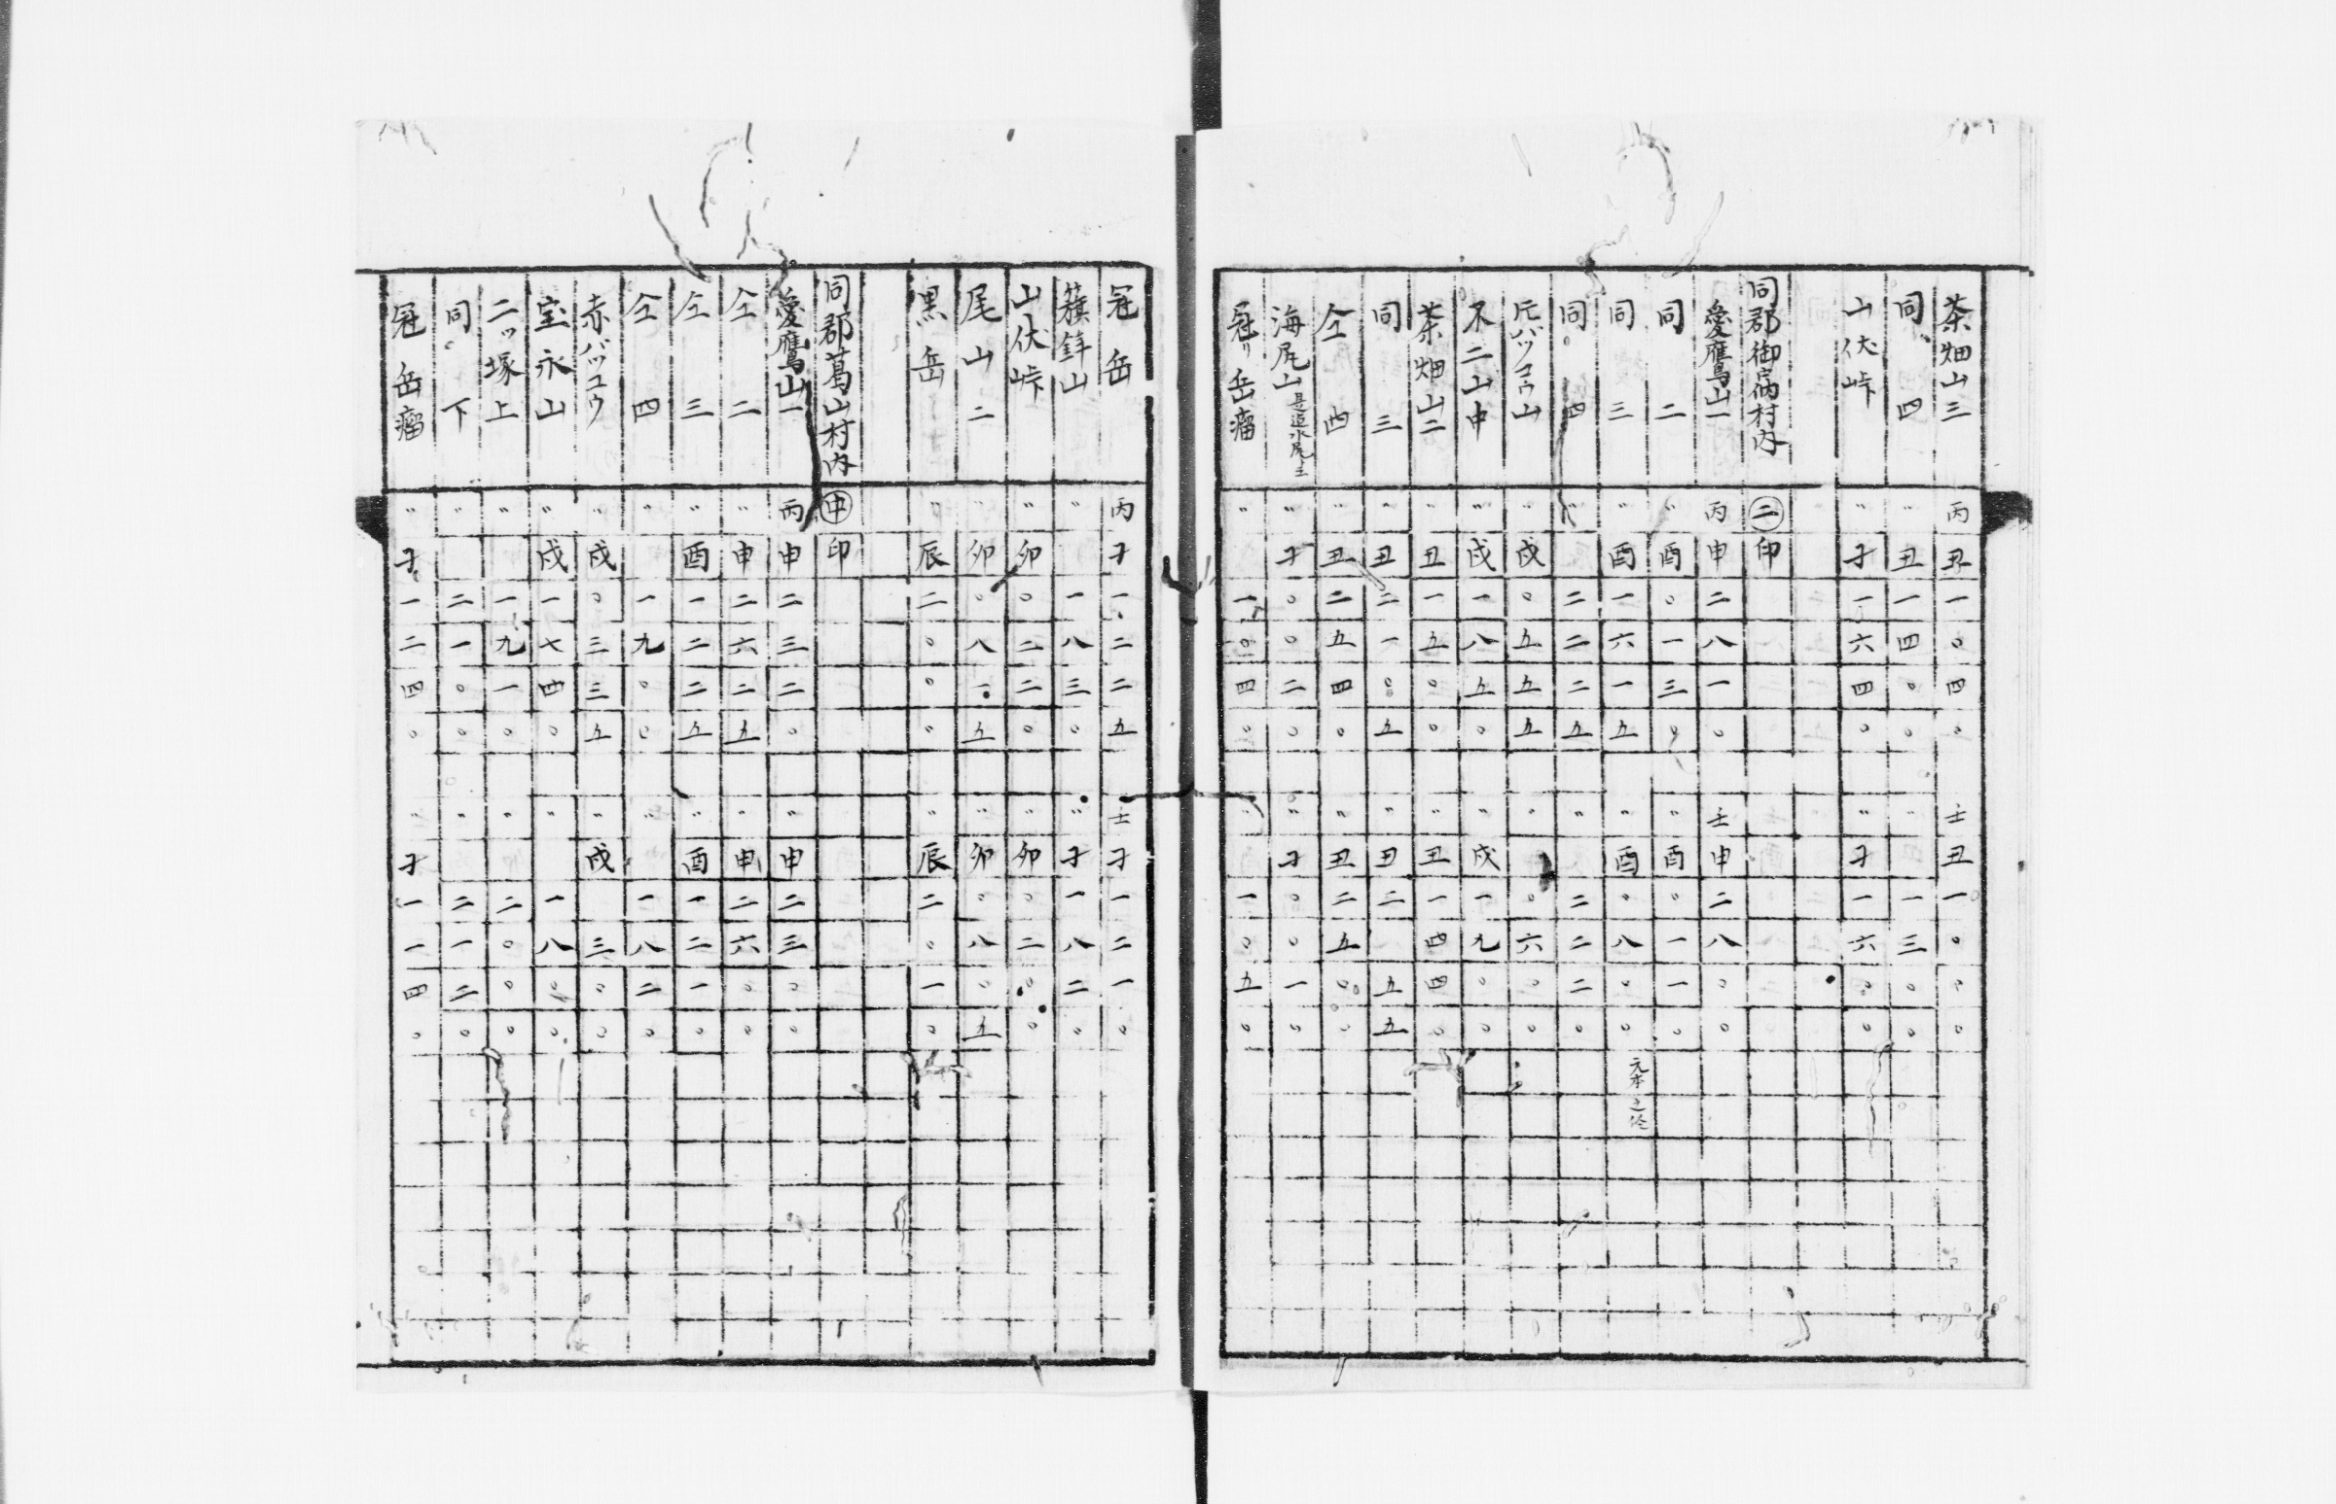 茶畑山三 丙丑一〇四〇 壬丑一〇〇〇
同〃四 〃丑一四〇〇 〃一三〇〇
山伏峠 〃子一六四〇 〃子一六〇〇
同郡御宿村内 ㊁印
愛鷹山一 丙申二八一〇 壬申二八〇〇
同二 〃酉〇一三〇 〃酉〇一一〇
同三 〃酉一六一五 〃酉〇八〇〇 元本之侭
同四 〃二二二五 〃二二二〇
バツコウ山 〃戌〇五五五 〃〇六〇〇
不二山中 〃戌一八五〇 〃戌一九〇〇
茶畑山二 〃丑一五〇〇 〃丑一四四〇
同三 〃丑二一〇五 〃丑二五五
仝四 〃丑二五四〇 〃丑二五〇〇
海尻山 〃子〇〇二〇 〃子〇〇一〇
冠リ岳瘤 〃一〇四〇 〃一〇五〇
冠岳 丙子一二二五 壬子一二一〇
籏鉾山 〃一八三〇 〃子一八二〇
山伏峠 〃卯〇二二〇 〃卯〇二〇〇
尾山二 〃卯〇八一五 〃卯〇八〇五
黒岳 〃辰二〇〇〇 〃辰二〇一〇
同郡葛山村内 ㊥印
愛鷹山一 丙申二三二〇 〃申二三〇〇
仝二 〃申二六二五 〃申二六〇〇
仝三 〃酉一二二五 〃酉一二一〇
仝四 〃一九〇〇 〃一八二〇
赤バツコウ 〃戌〇三三五 〃戌三〇〇
宝永山 〃戌一七四〇 〃一八〇〇
二ッ塚上 〃一九一〇 〃二〇〇〇
同下 〃二一〇〇 〃二一二〇
冠岳瘤 〃子一二四〇 〃子一一四〇